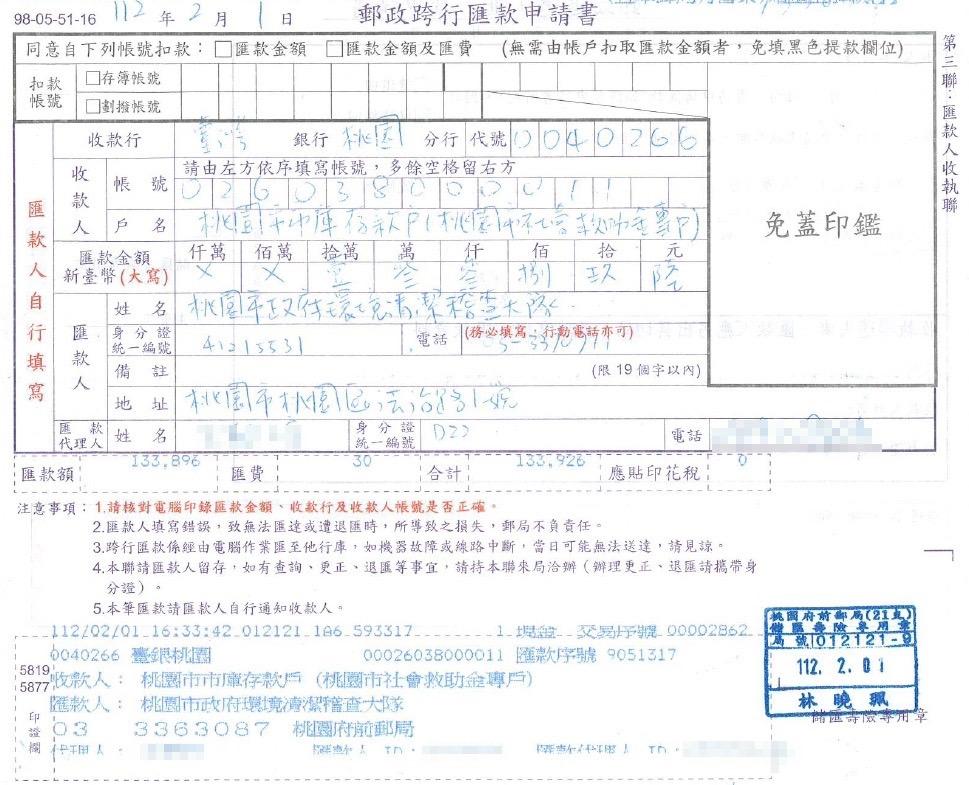 98-05-51-16 112 年 2 月 1 日 郵政跨行匯款申請書
同意自下列帳號扣款：□匯款金額 □匯款金額及匯費 (無需由帳戶扣取匯款金額者，免填黑色提款欄位)
扣款帳號 □存簿帳號
□劃撥帳號
第三聯：匯款人收執聯
匯款人自行填寫
收款行 臺灣 銀行 桃園 分行 代號 0040266
請由左方依序填寫帳號，多餘空格留右方
收款人 帳號 026038000011
戶名 桃園市市庫存款戶(桃園市社會救助金專戶)
免蓋印鑑
匯款金額 仟萬 佰萬 拾萬 萬 仟 佰 拾 元
新臺幣(大寫) X X 壹 參 參 捌 玖 陸
匯款人 姓名 桃園市政府環境清潔稽查大隊
身分證統一編號 41213531 電話 (務必填寫，行動電話亦可)
備註 (限19個字以內)
地址 桃園市桃園區法治路1號
匯款代理人 姓名 身分證統一編號 D22 電話
匯款額 133,896 匯費 30 合計 133,926 應貼印花稅 0
注意事項：1.請核對電腦印錄匯款金額、收款行及收款人帳號是否正確。
2.匯款人填寫錯誤，致無法匯達或遭退匯時，所導致之損失，郵局不負責任。
3.跨行匯款係經由電腦作業匯至他行庫，如機器故障或線路中斷，當日可能無法送達，請見諒。
4.本聯請匯款人留存，如有查詢、更正、退匯等事宜，請持本聯來局洽辦(辦理更正、退匯請攜帶身
分證)。
5.本筆匯款請匯款人自行通知收款人。
112/02/01 16:33:42 012121 1A6 593317 1 現金 交易序號 00002862
0040266 臺銀桃園 00026038000011 匯款序號 9051317
收款人： 桃園市市庫存款戶 (桃園市社會救助金專戶)
匯款人： 桃園市政府環境清潔稽查大隊
03 3363087 桃園府前郵局
代理人： 匯款人 ID： 匯款代理人 ID：
5819
5877
印證欄
桃園府前郵局(21支)
儲匯壽險專用章
局號 012121-9
112. 2. 01
林曉珮
儲匯壽險專用章